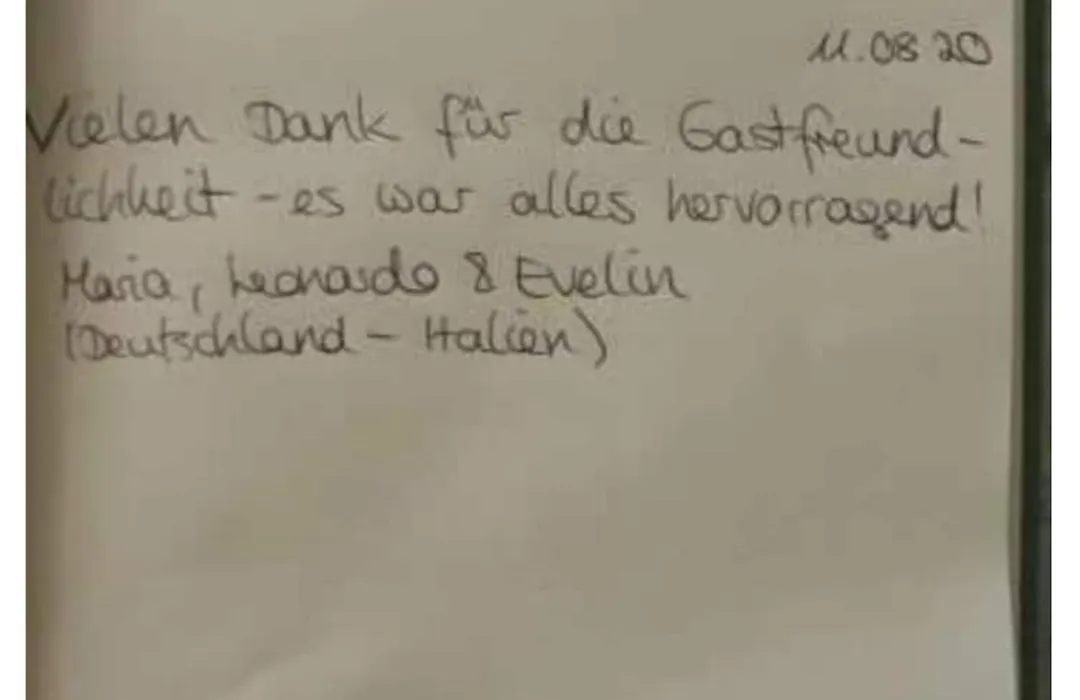 11.08 20
Vielen Dank für die Gastfreund-
lichkeit - es war alles hervorragend!
Maria, Leonardo & Evelin
(Deutschland - Italien)